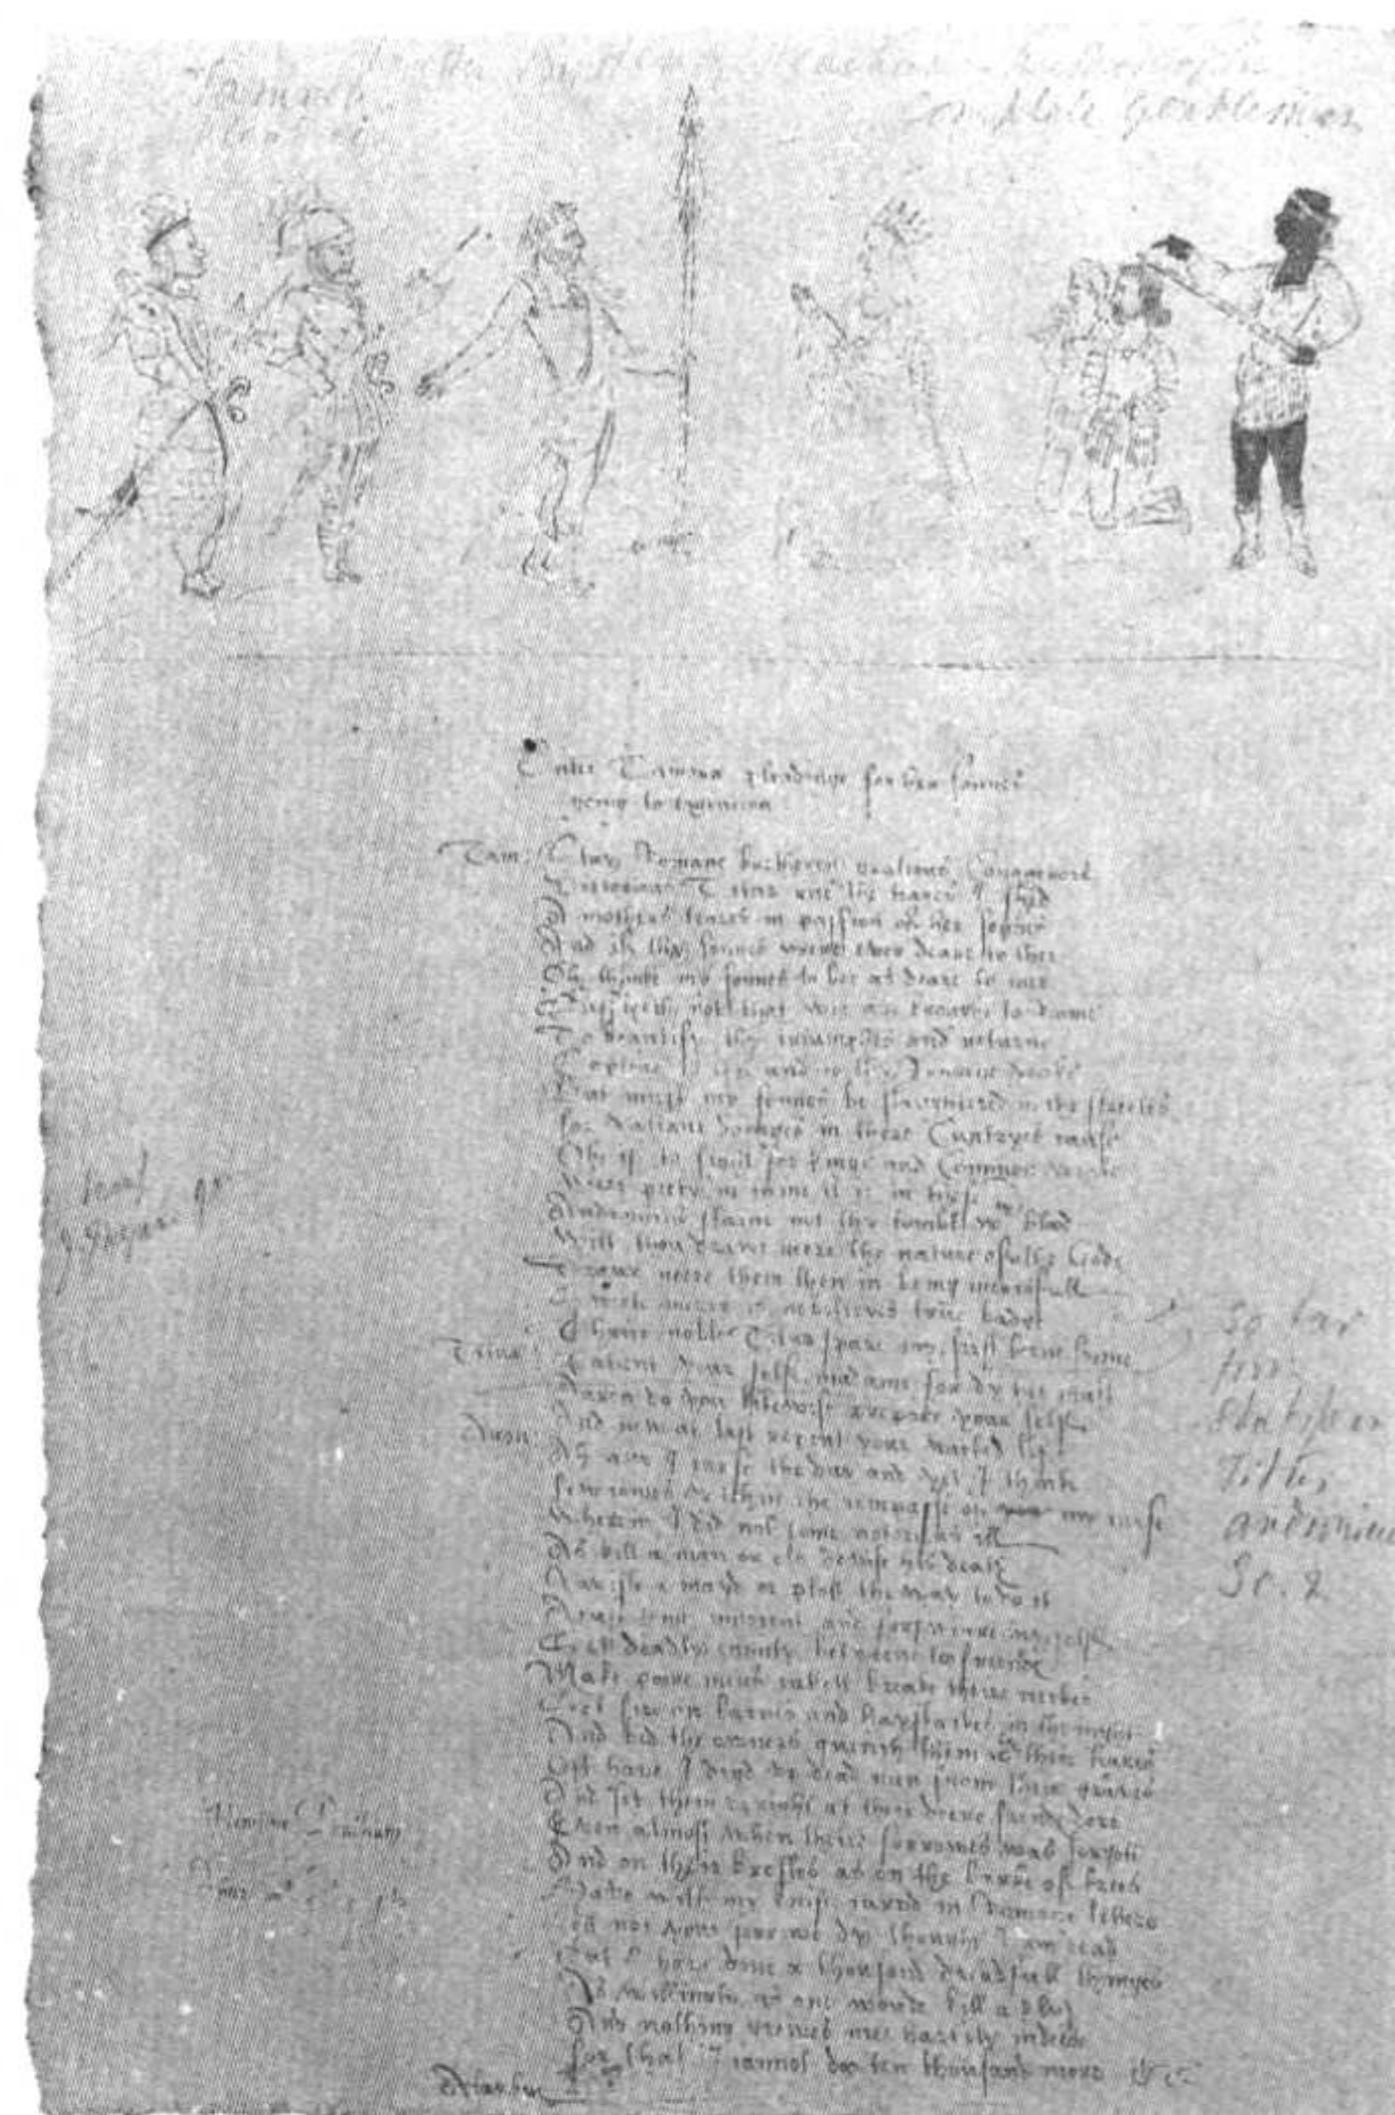 Written by Henry Peacham
Complete Gentleman
Enter Tamora pleadinge for her sonnes
going to execution
Tam: Stay Romane bretheren gratious Conquerors
Victorious Titus rue the teares I shed
A mothers teares in passion of her sonnes
And if thy sonnes were ever deare to thee
Oh thinke my sonnes to bee as deare to mee
Suffizeth not that wee are brought to Roome
To beautify thy triumphes and returne
Captive to thee and to thy Romane yoake
But must my sonnes be slaughtered in the streetes
for valiant doinges in there Cuntryes cause
Oh if to fight for kinge and Common weale
Were piety in thine it is in these
Andronicus staine not thy tombe wth blood
Wilt thou drawe neere the nature of the Godes
Drawe neere them then in being mercifull
Sweete mercy is nobilityes true badge
Thrice noble Titus spare my first borne sonne
Titus: Patient your self madame for dy hee must
Aaron do you likewise prepare your self
And now at last repent your wicked life
Aron: Ah now I curse the day and yet I thinke
few comes within the compasse of my curse
Wherein I did not some notorious ill
As kill a man or els devise his death
Ravish a mayd or plott the way to do it
Acuse some innocent and forsweare myself
Set deadly enmity betweene too freendes
Make poore mens cattell breake theire neckes
Set fire on barnes and haystackes in the night
And bid the owners quench them wth their teares
Oft have I digd up dead men from their graves
And set them upright at their deere frendes dore
Even almost when theire sorrowes was forgott
And on their brestes as on the barke of trees
Have with my knife carvd in Romane letters
Lett not your sorrowe dy though I am dead
Tut I have done a thousand dreadfull thinges
As willingly as one would kill a fly
And nothing greives mee hartily indeede
for that I cannot doo ten thousand more &c
Alarbus
So far
from
Titus
Andronicus
Sc. 2
Henricus Peacham